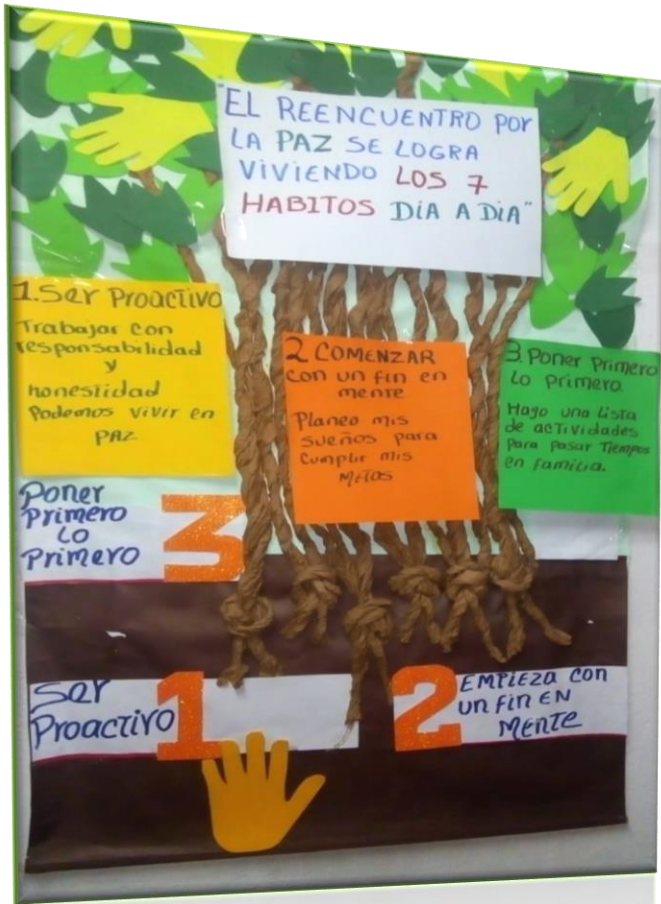 "EL REENCUENTRO POR
LA PAZ SE LOGRA
VIVIENDO LOS 7
HABITOS DIA A DIA"
1. Ser Proactivo
Trabajar con
responsabilidad
y
honestidad
Podemos vivir en
PAZ
2 COMENZAR
con un fin en
mente
Planeo mis
sueños para
Cumplir mis
METAS
3. Poner Primero
Lo primero.
Hago una Lista
de actividades
para pasar Tiempos
en familia.
Poner
Primero
Lo
Primero
3
Ser
Proactivo
1
2
EMPIEZA con
un fin EN
MENTE